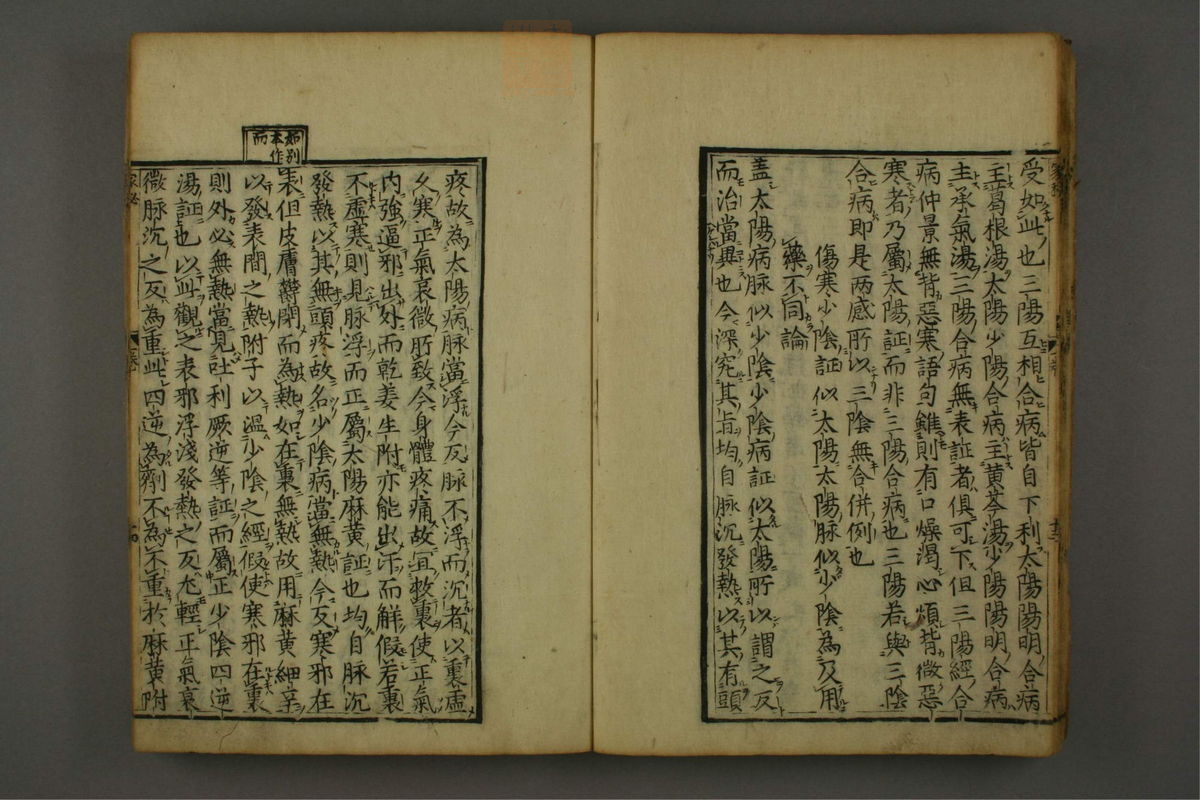 受如此也三陽互相合病皆自下利太陽陽明合病
主葛根湯太陽少陽合病主黄芩湯少陽陽明合病
主承氣湯三陽合病無表証者俱可下但三陽經合
病仲景無背惡寒語句雖則有口燥渇心煩背微惡
寒者乃屬太陽証而非三陽合病也三陽若與三陰
合病即是兩感所以三陰無合併例也
傷寒少陰証似太陽太陽脉似少陰為反用
藥不同論
蓋太陽病脉似少陰少陰病証似太陽所以謂之反
而治當異也今深究其旨均自脉沉發熱以其有頭
疼故為太陽病脉當浮今反脉不浮而沉者以裏虚
久寒正氣衰微所致今身體疼痛故宜救裏使正氣
内強逼邪出外而乾姜生附亦能出汗而解假若裏
不虚寒則見脉浮而正屬太陽麻黄証也均自脉沉
發熱以其無頭疼故名少陰病當無熱今反寒邪在
表但皮膚鬱閉而為熱如在裏無熱故用麻黄細辛
以發表間之熱附子以温少陰之經假使寒邪在裏
則外必無熱當見吐利厥逆等証而屬正少陰四逆
湯証也以此觀之表邪浮淺發熱之反尤輕正氣衰
微脉沉之反為重此四逆為劑不為不重於麻黄附
如別
本作
而